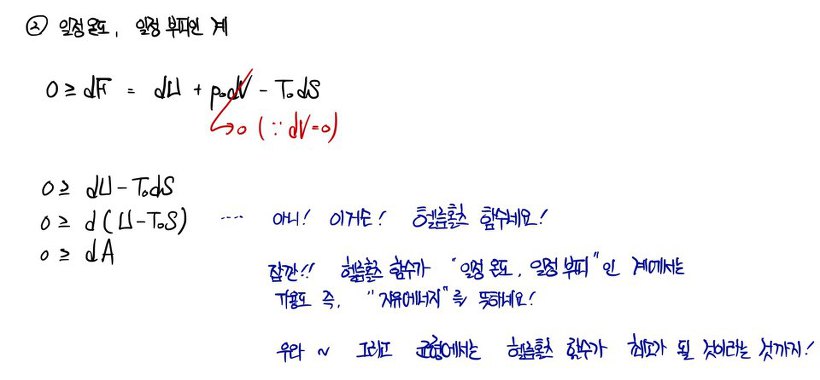 ② 일정 온도, 일정 부피인 계
0 ≥ dF = dU + p₀dV - T₀dS
→ 0 (∵ dV=0)
0 ≥ dU - T₀dS
0 ≥ d(U-T₀S) ···· 아니! 이거슨! 헬름홀츠 함수네요!
0 ≥ dA
잠깐!! 헬름홀츠 함수가 "일정 온도, 일정 부피"인 계에서는
가용도 즉, "자유에너지"를 뜻하네요!
우와 ~ 그리고 균형에서는 헬름홀츠 함수가 최소가 될 것이라는 것까지!